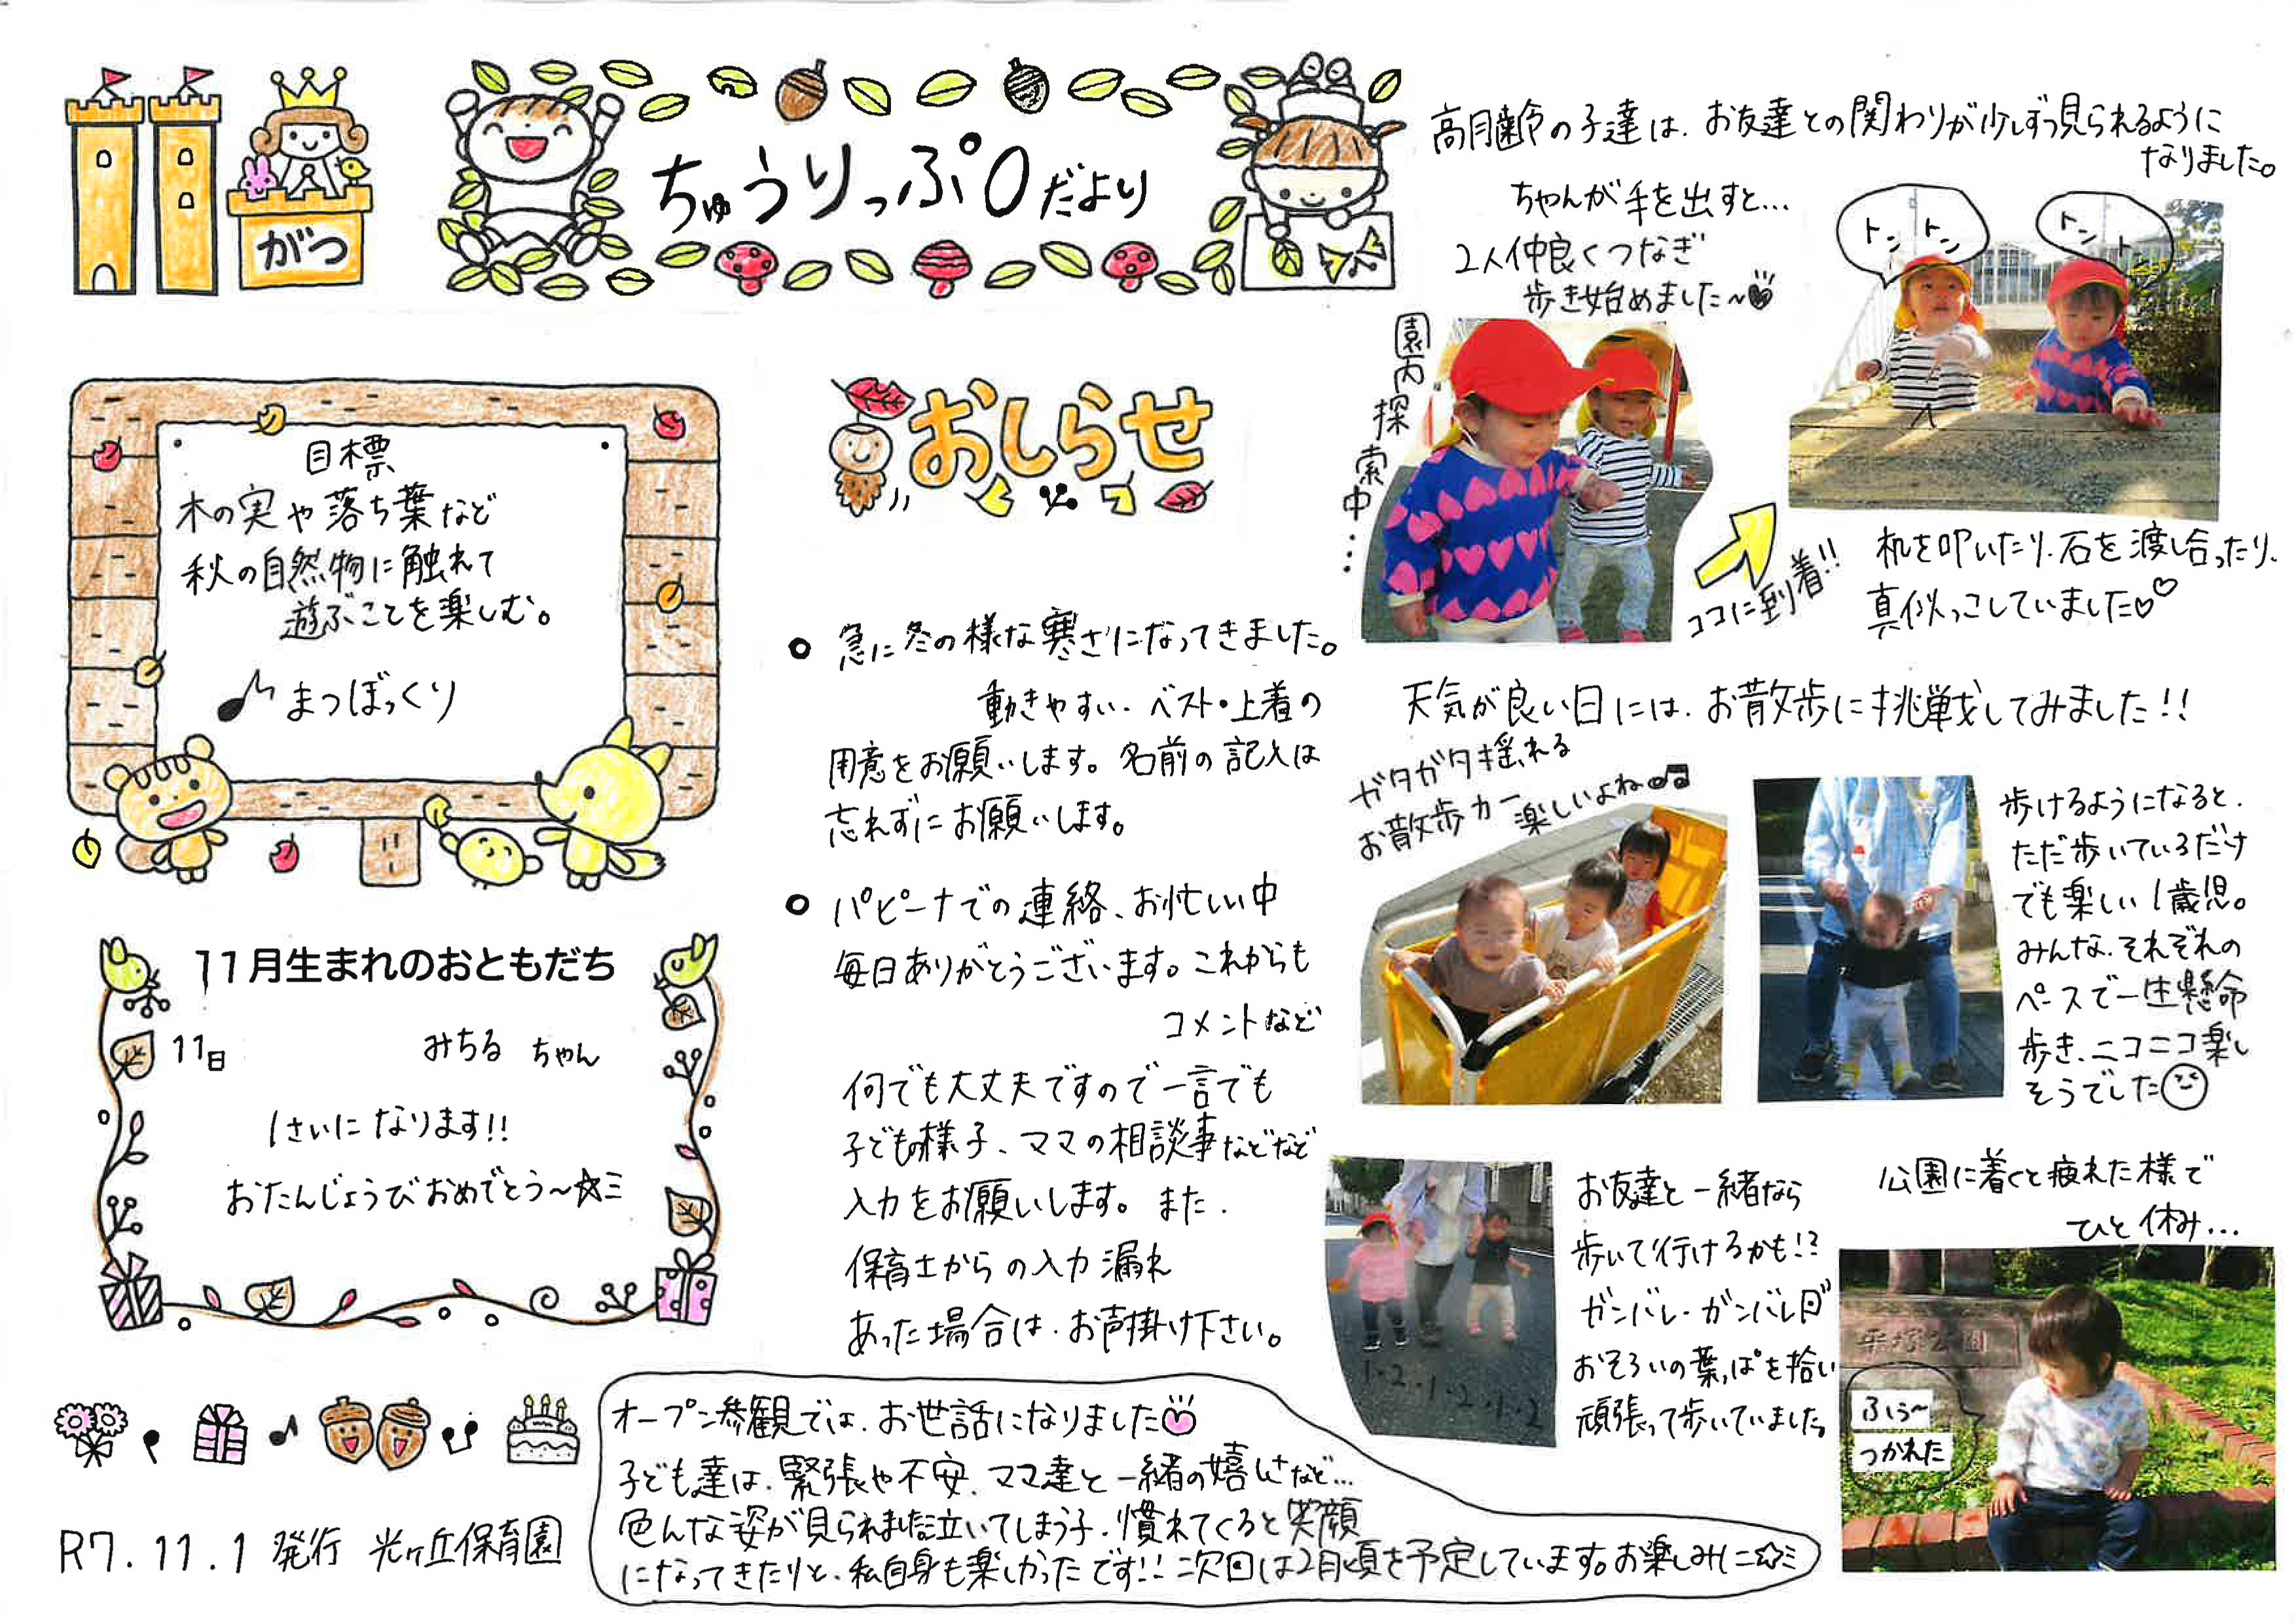 がつ
ちゅうりっぷ0だより
目標
木の実や落ち葉など
秋の自然物に触れて
遊ぶことを楽しむ。
♪まつぼっくり
11月生まれのおともだち
11日 みちる ちゃん
1さいになります!!
おたんじょうびおめでとう〜☆ミ
R7.11.1 発行 光ヶ丘保育園
おしらせ
急に冬の様な寒さになってきました。
動きやすい、ベスト・上着の
用意をお願いします。名前の記入は
忘れずにお願いします。
パピーナでの連絡、お忙しい中
毎日ありがとうございます。これからも
コメントなど
何でも大丈夫ですので一言でも
子どもの様子、ママの相談事などなど
入力をお願いします。また、
保育士からの入力漏れ
あった場合は、お声掛け下さい。
オープン参観では、お世話になりました
子ども達は、緊張や不安、ママ達と一緒の嬉しさなど…
色んな姿が見られました泣いてしまう子、慣れてくると笑顔
になってきたりと、私自身も楽しかったです!!次回は2月頃を予定しています。お楽しみに☆ミ
高月齢の子達は、お友達との関わりが少しずつ見られるように
なりました。
ちゃんが手を出すと…
2人仲良くつなぎ
歩き始めました〜
園内探索中…
トントン
トント
ココに到着!!
机を叩いたり、石を渡し合ったり、
真似っこしていました♡♡
天気が良い日には、お散歩に挑戦してみました!!
ガタガタ揺れる
お散歩カー楽しいよね♪♫
歩けるようになると、
ただ歩いているだけ
でも楽しい1歳児。
みんな、それぞれの
ペースで一生懸命
歩き、ニコニコ楽し
そうでした
1・2・1・2・1・2
お友達と一緒なら
歩いて行けるかも!?
ガンバレ・ガンバレ
おそろいの葉っぱを拾い
頑張って歩いていました
公園に着くと疲れた様で
ひと休み…
平塚公園
ふぅ〜
つかれた